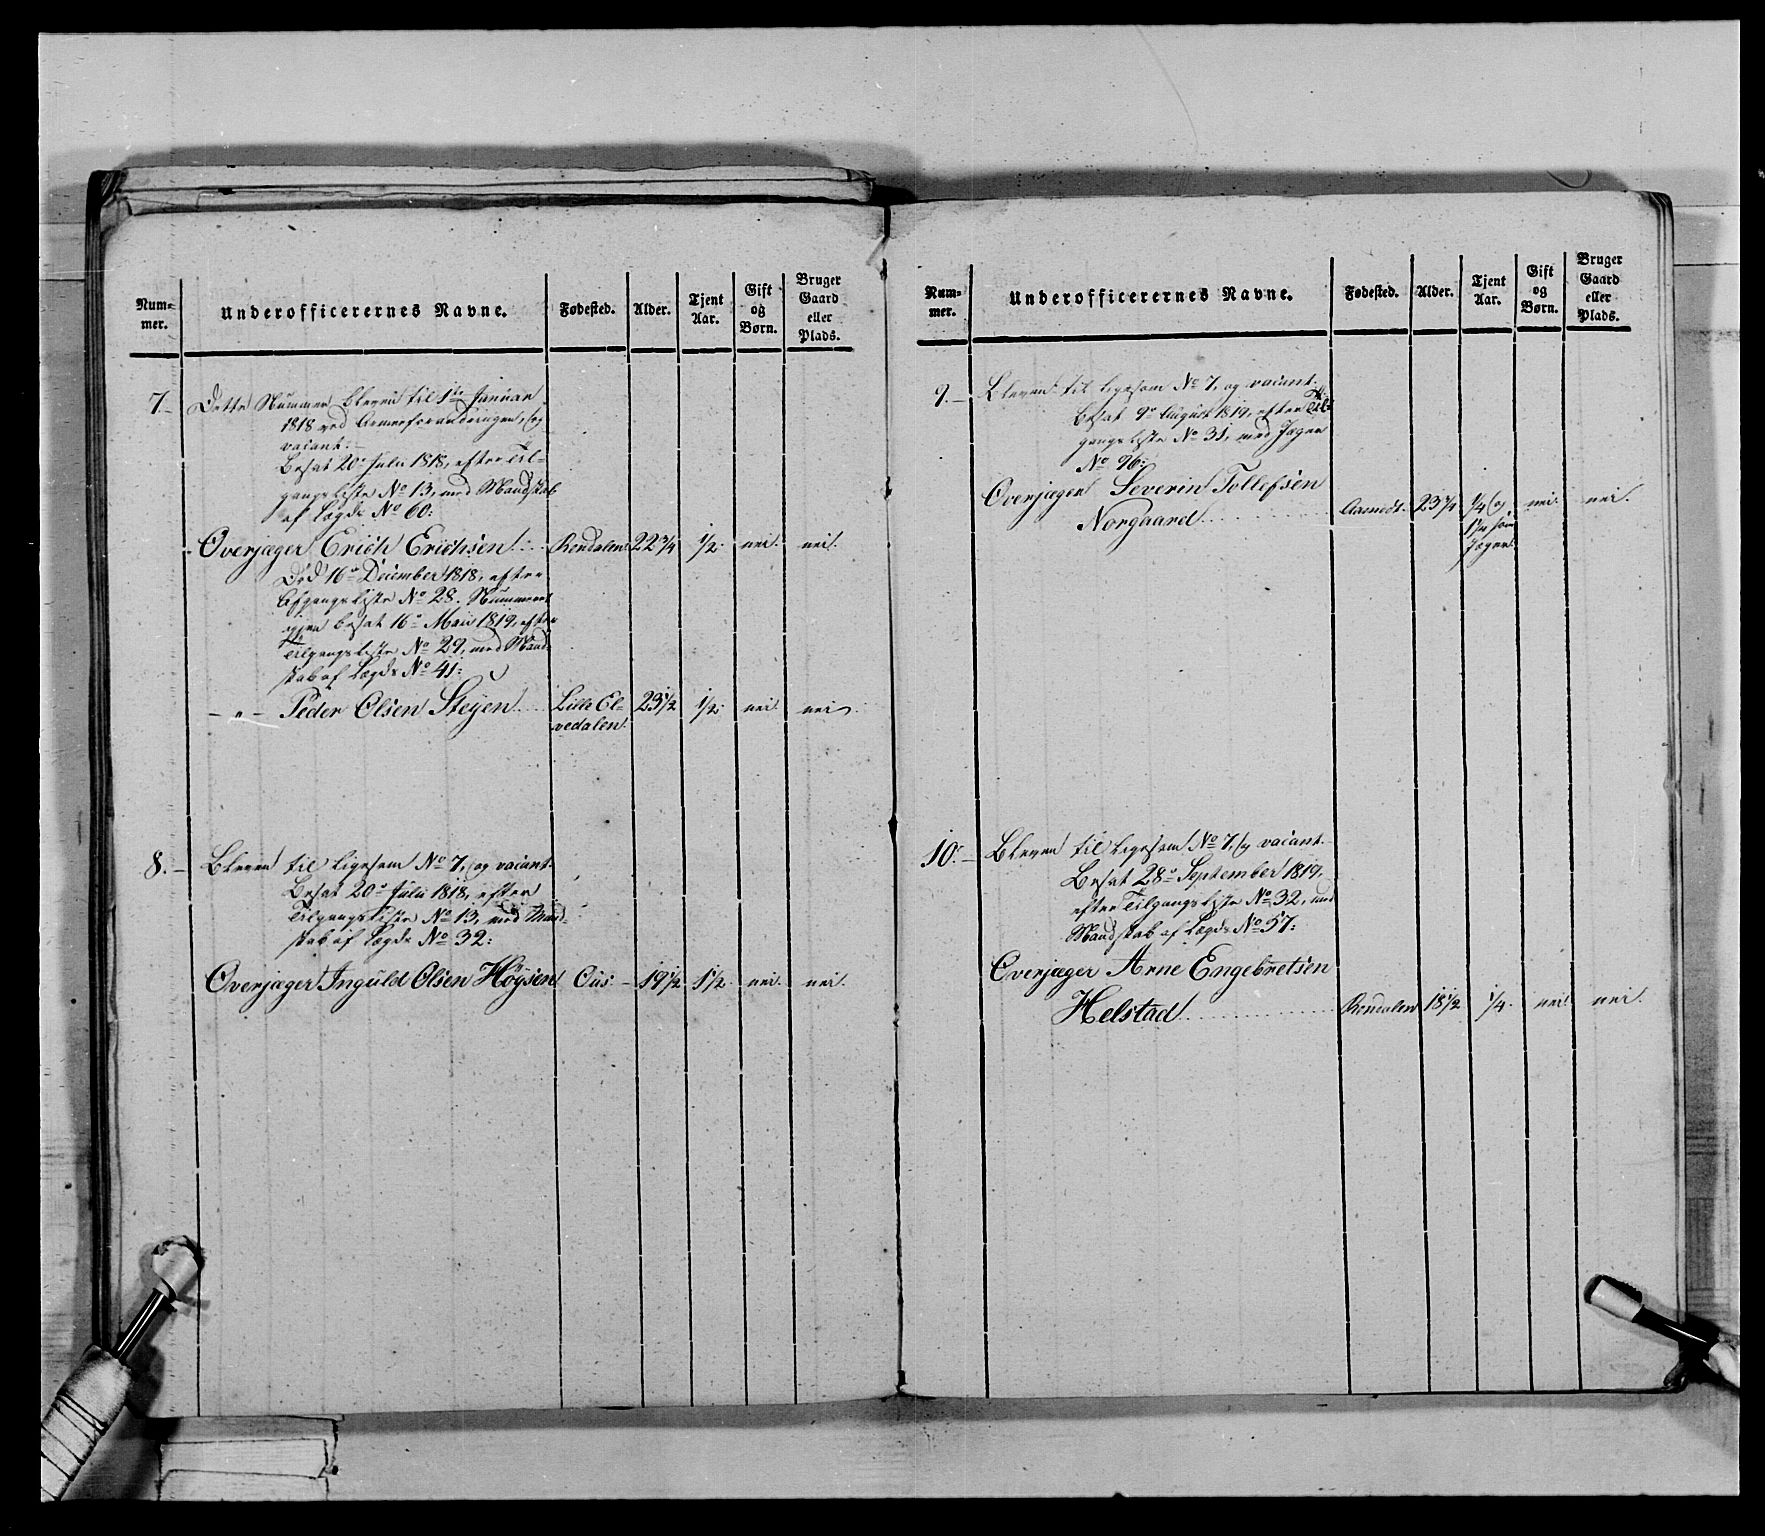 Num-
mer.
Underofficerernes Navne.
Fødested.
Alder.
Tjent
Aar.
Gift
og
Børn.
Bruger
Gaard
eller
Plads.
7. Dette Nummer bleven til 1ste Januar
1818 ved Armeeforandringen, og
vacant.
Besat 20de Julii 1818, efter Til-
gangsliste No 13, med Mandskab
af Lægds No 60:
Overjæger Erich Erichsen. Rendalen 22 3/4 1/2 nei. nei.
Død 16de December 1818, efter
Afgangsliste No 28. Nummeret
igjen besat 16de Maii 1819, efter
Tilgangsliste No 29, med Mand-
skab af Lægds No 41:
— " — Peder Olsen Steyen. Lille El-
vedalen. 23 1/2 1/2 nei. nei.
8. Bleven til ligesom No 7, og vacant.
Besat 20de Julii 1818, efter
Tilgangsliste No 13, med Mand-
skab af Lægds No 32:
Overjæger Inguld Olsen Höysen Ous. 19 1/2 1 1/2 nei. nei.
Num-
mer.
Underofficerernes Navne.
Fødested.
Alder.
Tjent
Aar.
Gift
og
Børn.
Bruger
Gaard
eller
Plads.
9. Bleven til ligesom No 7, og vacant.
Besat 9de August 1819, efter Til-
gangsliste No 31, med Jæger
No 96:
Overjæger Severin Tollefsen
Norgaard Aamodt. 23 3/4 1/4 og nei. nei.
1 1/4 som
Jæger.
10. Bleven til ligesom No 7, og vacant.
Besat 28de September 1819,
efter Tilgangsliste No 32, med
Mandskab af Lægds No 57:
Overjæger Arne Engebretsen
Helstad Rendalen 18 1/2 1/4 nei. nei.